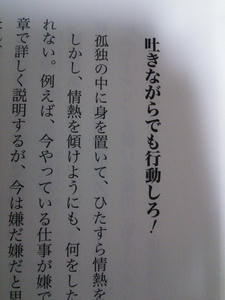 吐きながらでも行動しろ！
孤独の中に身を置いて、ひたすら情熱を
しかし、情熱を傾けようにも、何をした
れない。例えば、今やっている仕事が嫌で
章で詳しく説明するが、今は嫌だ嫌だと思